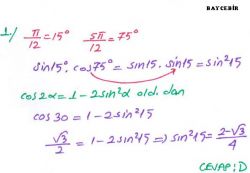 BAYCEBİR
1./ π/12 = 15° 5π/12 = 75°
sin15°. cos75° = sin15. sin15 = sin²15
cos2α = 1 - 2sin²α old. dan
cos30 = 1 - 2sin²15
√3/2 = 1 - 2sin²15 ⇒ sin²15 = (2-√3)/4
CEVAP: D